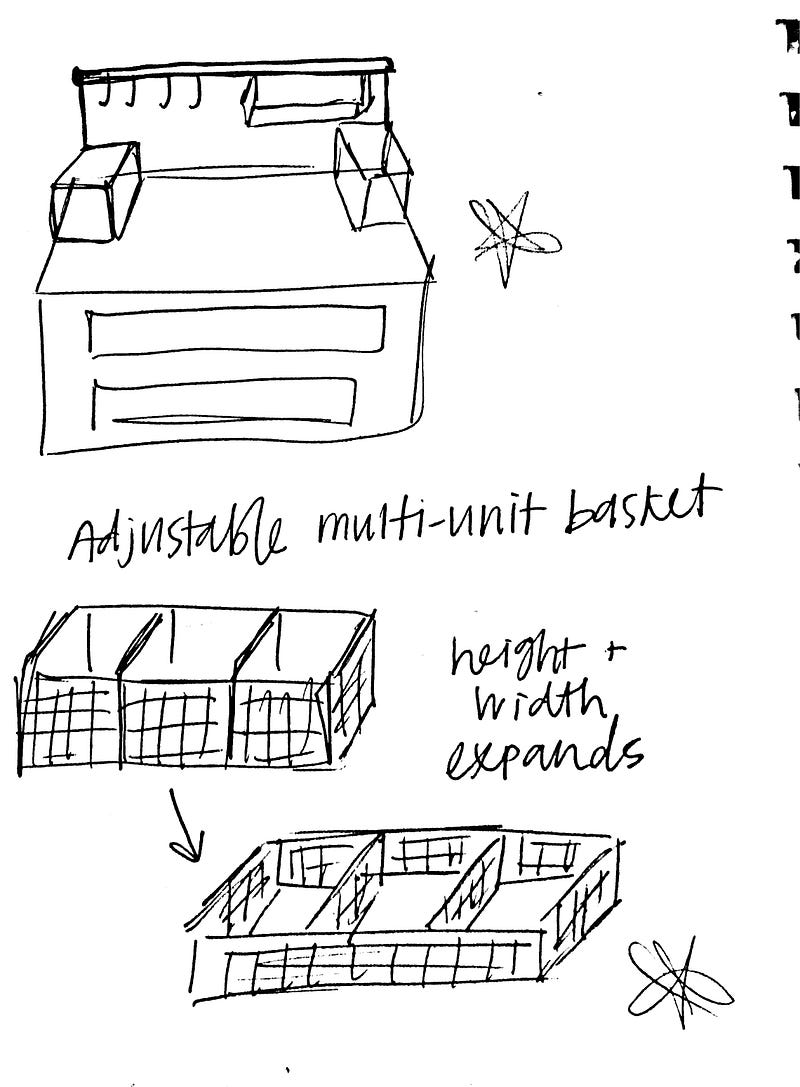 Adjustable multi-unit basket
height +
width
expands